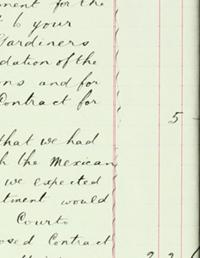 ment for the
t to your
Gardiners
dation of the
ons and for
Contract for
5 -
that we had
h the Mexican
we expected
tinent would
Court.
osed Contract